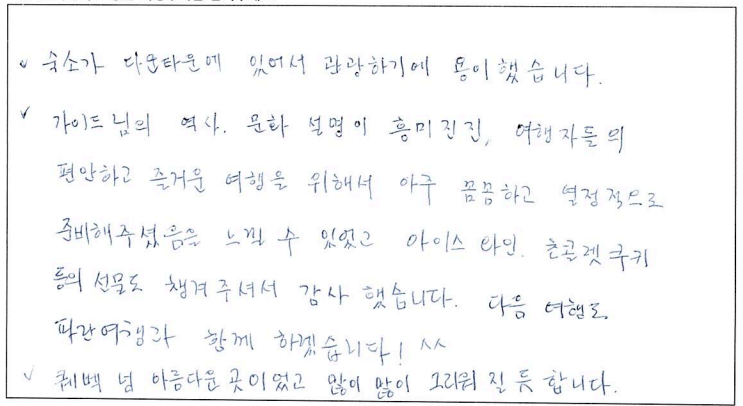 ✓ 숙소가 다운타운에 있어서 관광하기에 용이했습니다.
✓ 가이드님의 역사. 문화 설명이 흥미진진, 여행자들의
편안하고 즐거운 여행을 위해서 아주 꼼꼼하고 열정적으로
준비해주셨음을 느낄 수 있었고 아이스 와인. 초콜렛 쿠키
등의 선물도 챙겨주셔서 감사했습니다. 다음 여행도
파란여행과 함께 하겠습니다! ^^
✓ 퀘벡 넘 아름다운 곳이었고 많이 많이 그리워 질 듯 합니다.